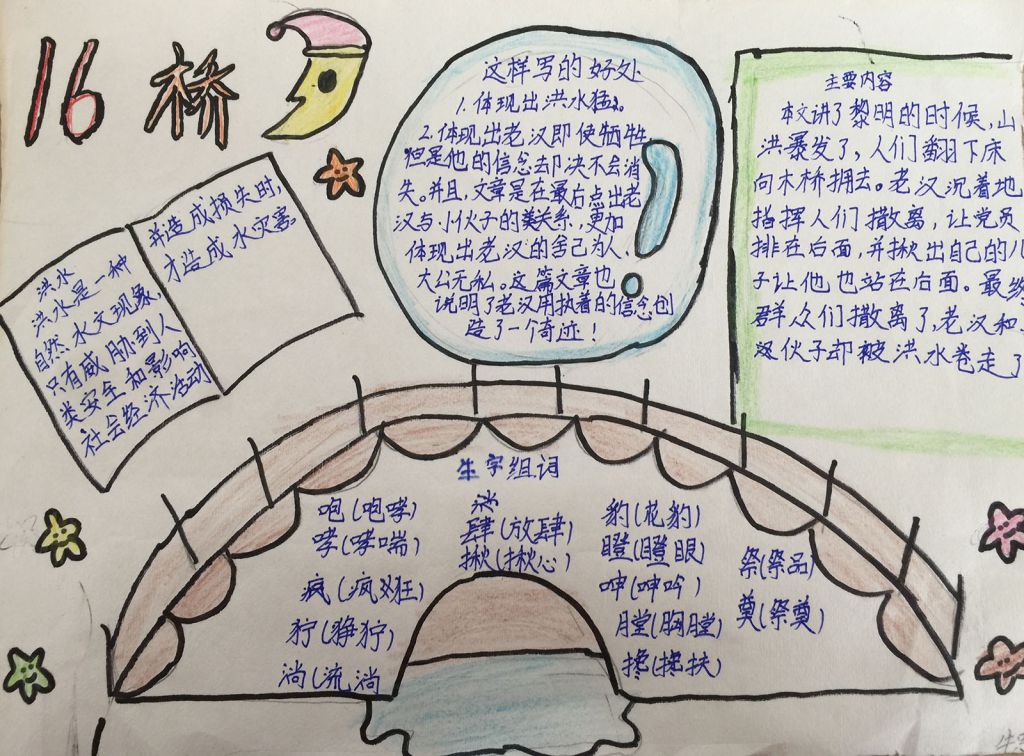 16 桥
洪水
洪水是一种
自然水文现象,
只有威胁到人
类安全和影响
社会经济活动
并造成损失时,
才造成水灾害
这样写的好处
1.体现出洪水猛。
2.体现出老汉即使牺牲
但是他的信念却决不会消
失。并且,文章是在最后点出老
汉与小伙子的关系,更加
体现出老汉的舍己为人、
大公无私。这篇文章也
说明了老汉用执着的信念创
造了一个奇迹!
主要内容
本文讲了黎明的时候,山
洪暴发了,人们翻下床
向木桥拥去。老汉沉着地
指挥人们撤离,让党员
排在后面,并揪出自己的儿
子让他也站在后面。最终
群众们撤离了,老汉和
汉伙子却被洪水卷走了
生字组词
咆(咆哮)
哮(哮喘)
疯(疯狂)
狞(狰狞)
淌(流淌)
肆(放肆)
揪(揪心)
豹(花豹)
瞪(瞪眼)
呻(呻吟)
膛(胸膛)
搀(搀扶)
祭(祭品)
奠(祭奠)